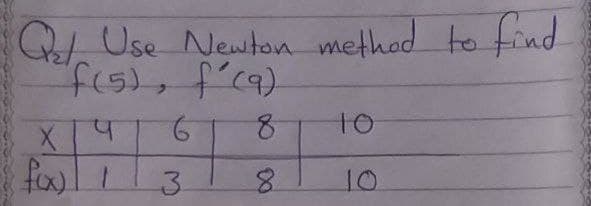 Q2/ Use Newton method to find
f(5), f'(9)
X | 4 | 6 | 8 | 10
f(x) | 1 | 3 | 8 | 10